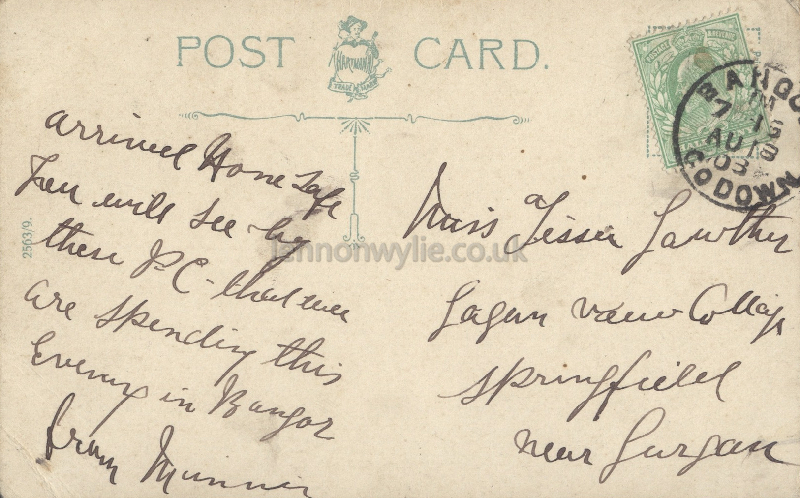 POST CARD.
HARTMANN
TRADE MARK
BANGOR
7 15
AU 18
03
CO DOWN
2563/9.
arrived Home Safe
you will see by
these P.C. that we
are spending this
Evening in Bangor
from
Miss Tessie Lawther
Lagan view Cottage
Springfield
near Lurgan
lennonwylie.co.uk